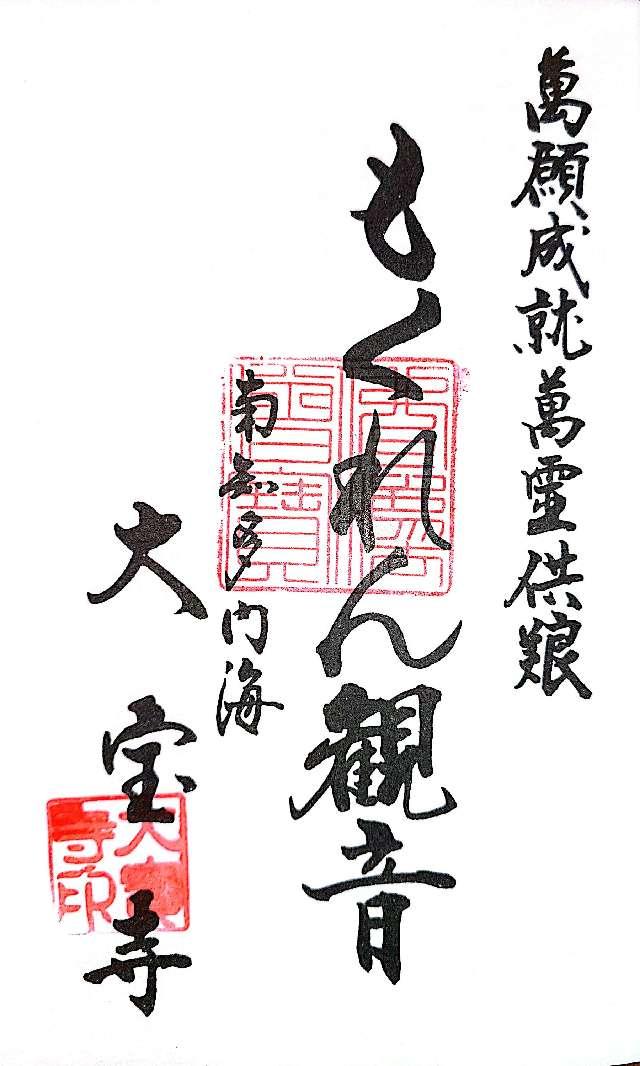 萬願成就萬霊供養
もくれん観音
南知多内海
大宝寺
大寳寺印